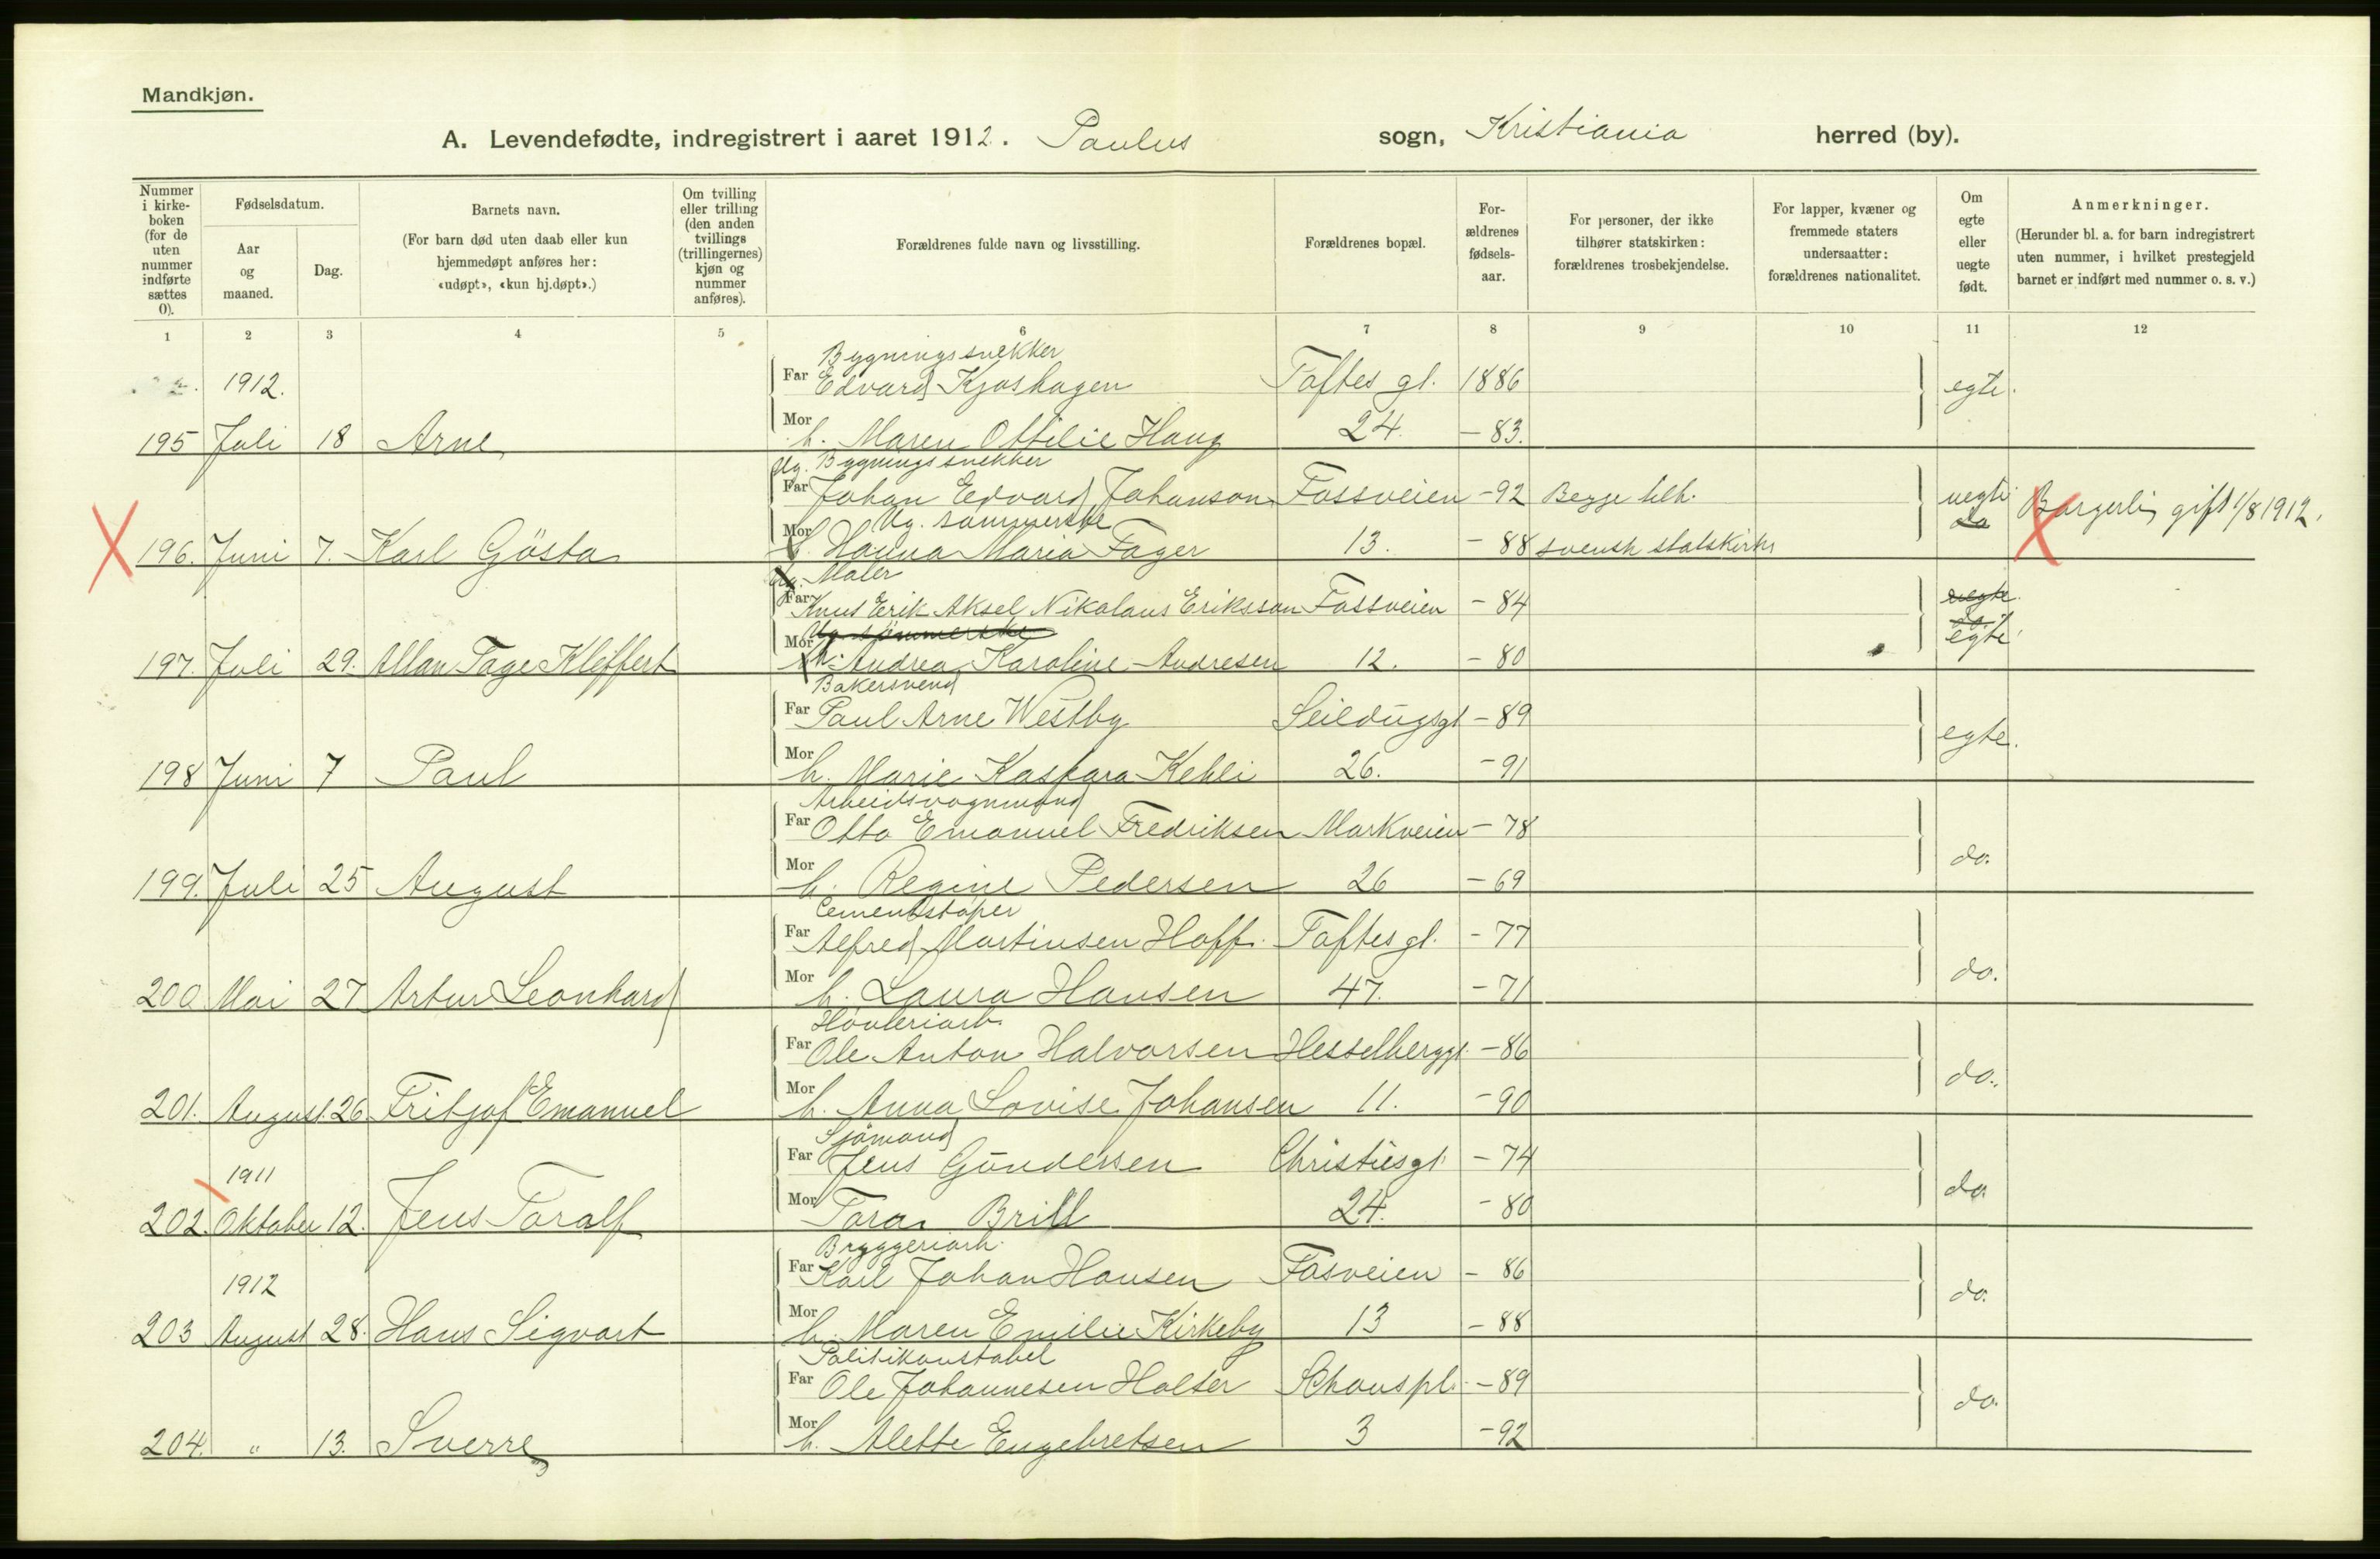 Mandkjøn.
A. Levendefødte, indregistrert i aaret 1912. Paulus sogn, Kristiania herred (by).
Nummer i kirkeboken (for de uten nummer indførte sættes 0).
Fødselsdatum.
Aar og maaned.
Dag.
Barnets navn.
(For barn død uten daab eller kun hjemmedøpt anføres her: «udøpt», «kun hj.døpt».)
Om tvilling eller trilling (den anden tvillings (trillingernes) kjøn og nummer anføres).
Forældrenes fulde navn og livsstilling.
Forældrenes bopæl.
Forældrenes fødselsaar.
For personer, der ikke tilhører statskirken: forældrenes trosbekjendelse.
For lapper, kvæner og fremmede staters undersaatter: forældrenes nationalitet.
Om egte eller uegte født.
Anmerkninger.
(Herunder bl. a. for barn indregistrert uten nummer, i hvilket prestegjeld barnet er indført med nummer o. s. v.)
1 2 3 4 5 6 7 8 9 10 11 12
Bygningssnekker
1912. Far Edvard Kjoshagen Toftes gt. 1886 egte.
195 Juli 18 Arne Mor h. Maren Ottilie Haug 24. - 83.
Ug. Bygningssnekker
Far Johan Edvard Johanson Fossveien - 92 Begge hlh. uegte do Borgerlig gift 1/8 1912.
Ug. sømmerske
196. Juni 7. Karl Gösta Mor Hanna Maria Fager 13. - 88 svensk statskirke
Ug. Maler
Far Knut Erik Aksel Nikolaus Eriksson Fossveien - 84 uegte
Ug. sømmerske
197. Juli 29. Allan Tage Kleffert Mor h. Andrea Karoline Andresen 12. - 80 egte
Bakersvend
Far Paul Arne Westby Seildugsgt - 89 egte.
198 Juni 7 Paul Mor h. Marie Kaspara Kehli 26. - 91
Arbeidsvognmand
Far Otto Emanuel Fredriksen Markveien - 78
199. Juli 25 August Mor h. Regine Pedersen 26 - 69 do.
Cementstøper
Far Alfred Martinsen Hoff. Toftes gt. - 77
200 Mai 27 Artur Leonhard Mor h. Laura Hansen 47. - 71 do.
Høvleriarb.
Far Ole Anton Halvorsen Hesselberggt. - 86
201. August. 26 Fritjof Emanuel Mor h. Anna Lovise Johansen 11. - 90 do.
Sjømand
1911 Far Jens Gundersen Christiesgt - 74
202. Oktober 12. Jens Toralf Mor Tora Brill 24. - 80 do.
Bryggeriarb.
1912 Far Karl Johan Hansen Fosveien - 86
203 August 28. Hans Sigvart Mor h. Maren Emilie Kirkeby 13 - 88 do.
Politikonstabel
Far Ole Johannesen Holter Schouspl. - 89
204. " 13. Sverre Mor h. Alette Engebretsen 3 - 92 do.